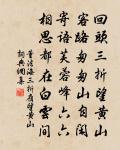 回頭三折望黃山
客路匆匆山自閑
寄語芙蓉峰六六
相思都在白雲間
三折嶺望黃山
詞典網集